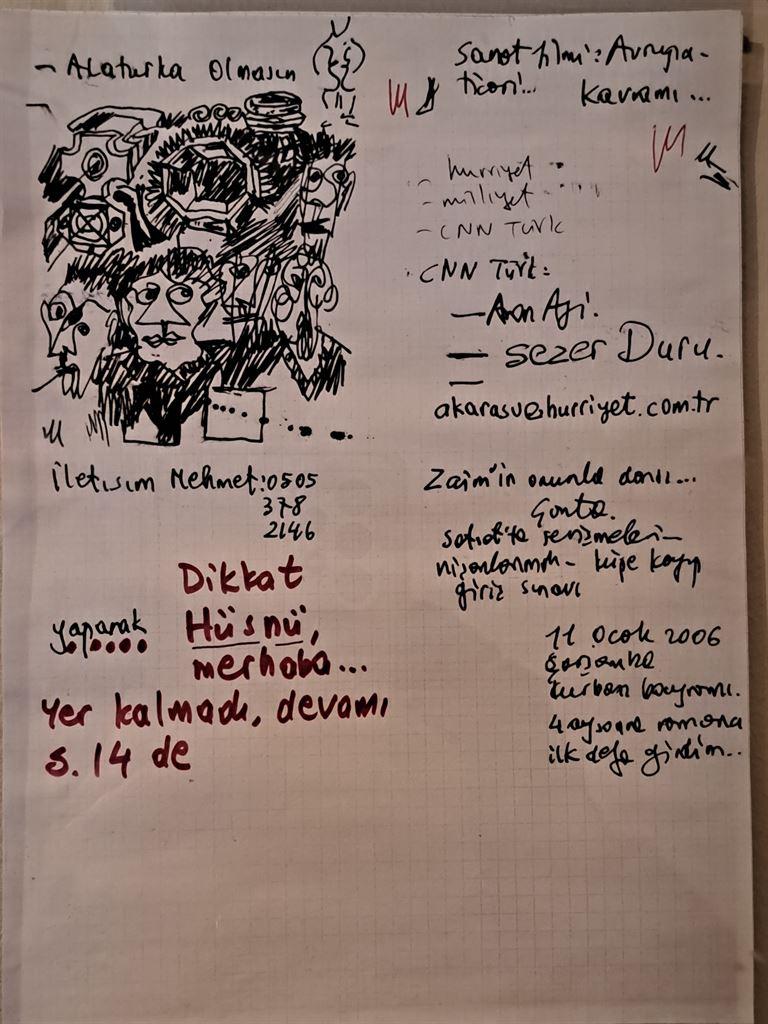 - Alaturka Olmasın
Sanat filmi: Avrupa-
ticari... Kavramı...
- hürriyet
- milliyet
- CNN Türk
CNN Türk:
- Sezer Duru.
akarasu@hurriyet.com.tr
İletısım Mehmet: 0505
378
2146
Zaim'in onunla dansı...
giriş sınavı
Dikkat
yaparak Hüsnü,
merhaba...
Yer kalmadı, devamı
s. 14 de
11 Ocak 2006
Çarşamba
kurban bayramı.
4 ay sonra romana
ilk defa girdim...